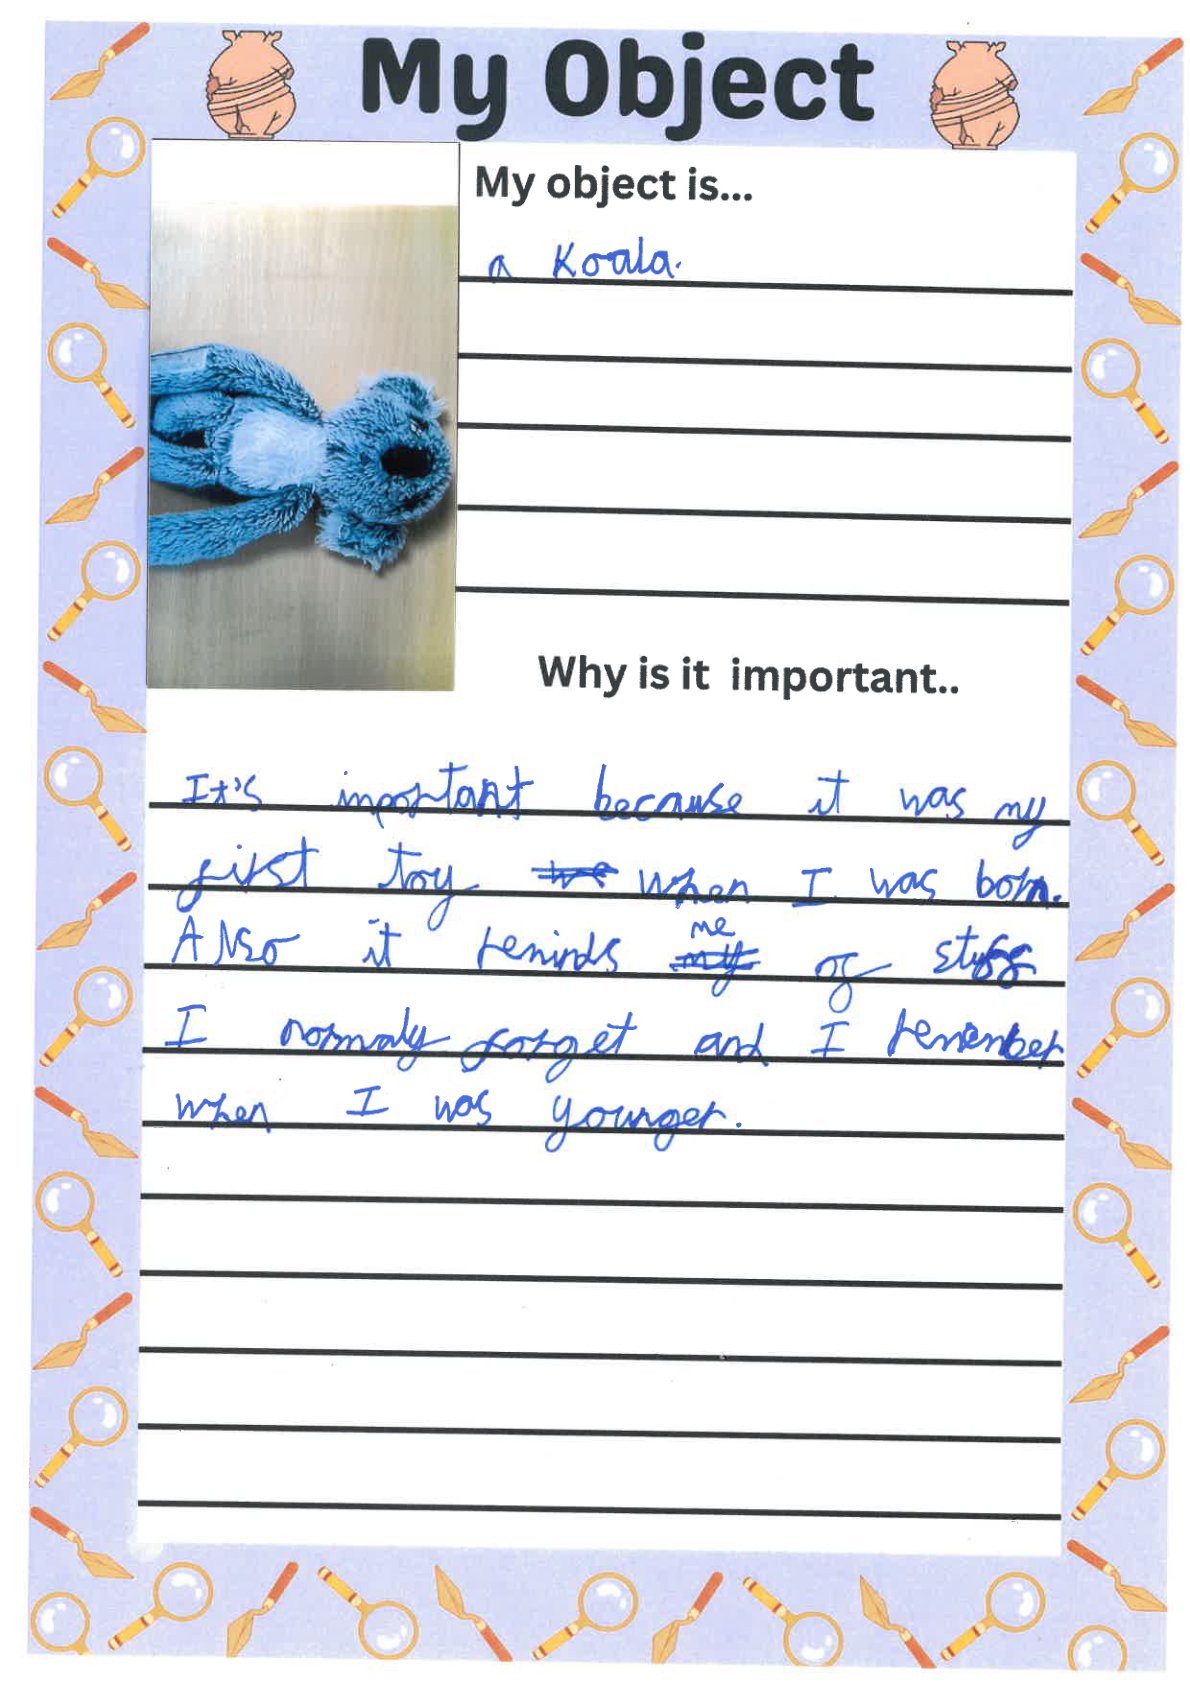 My Object
My object is...
a Koala.
Why is it important..
It's important because it was my
first toy when I was born.
Also it reminds me of stuff
I normaly forget and I remember
when I was younger.